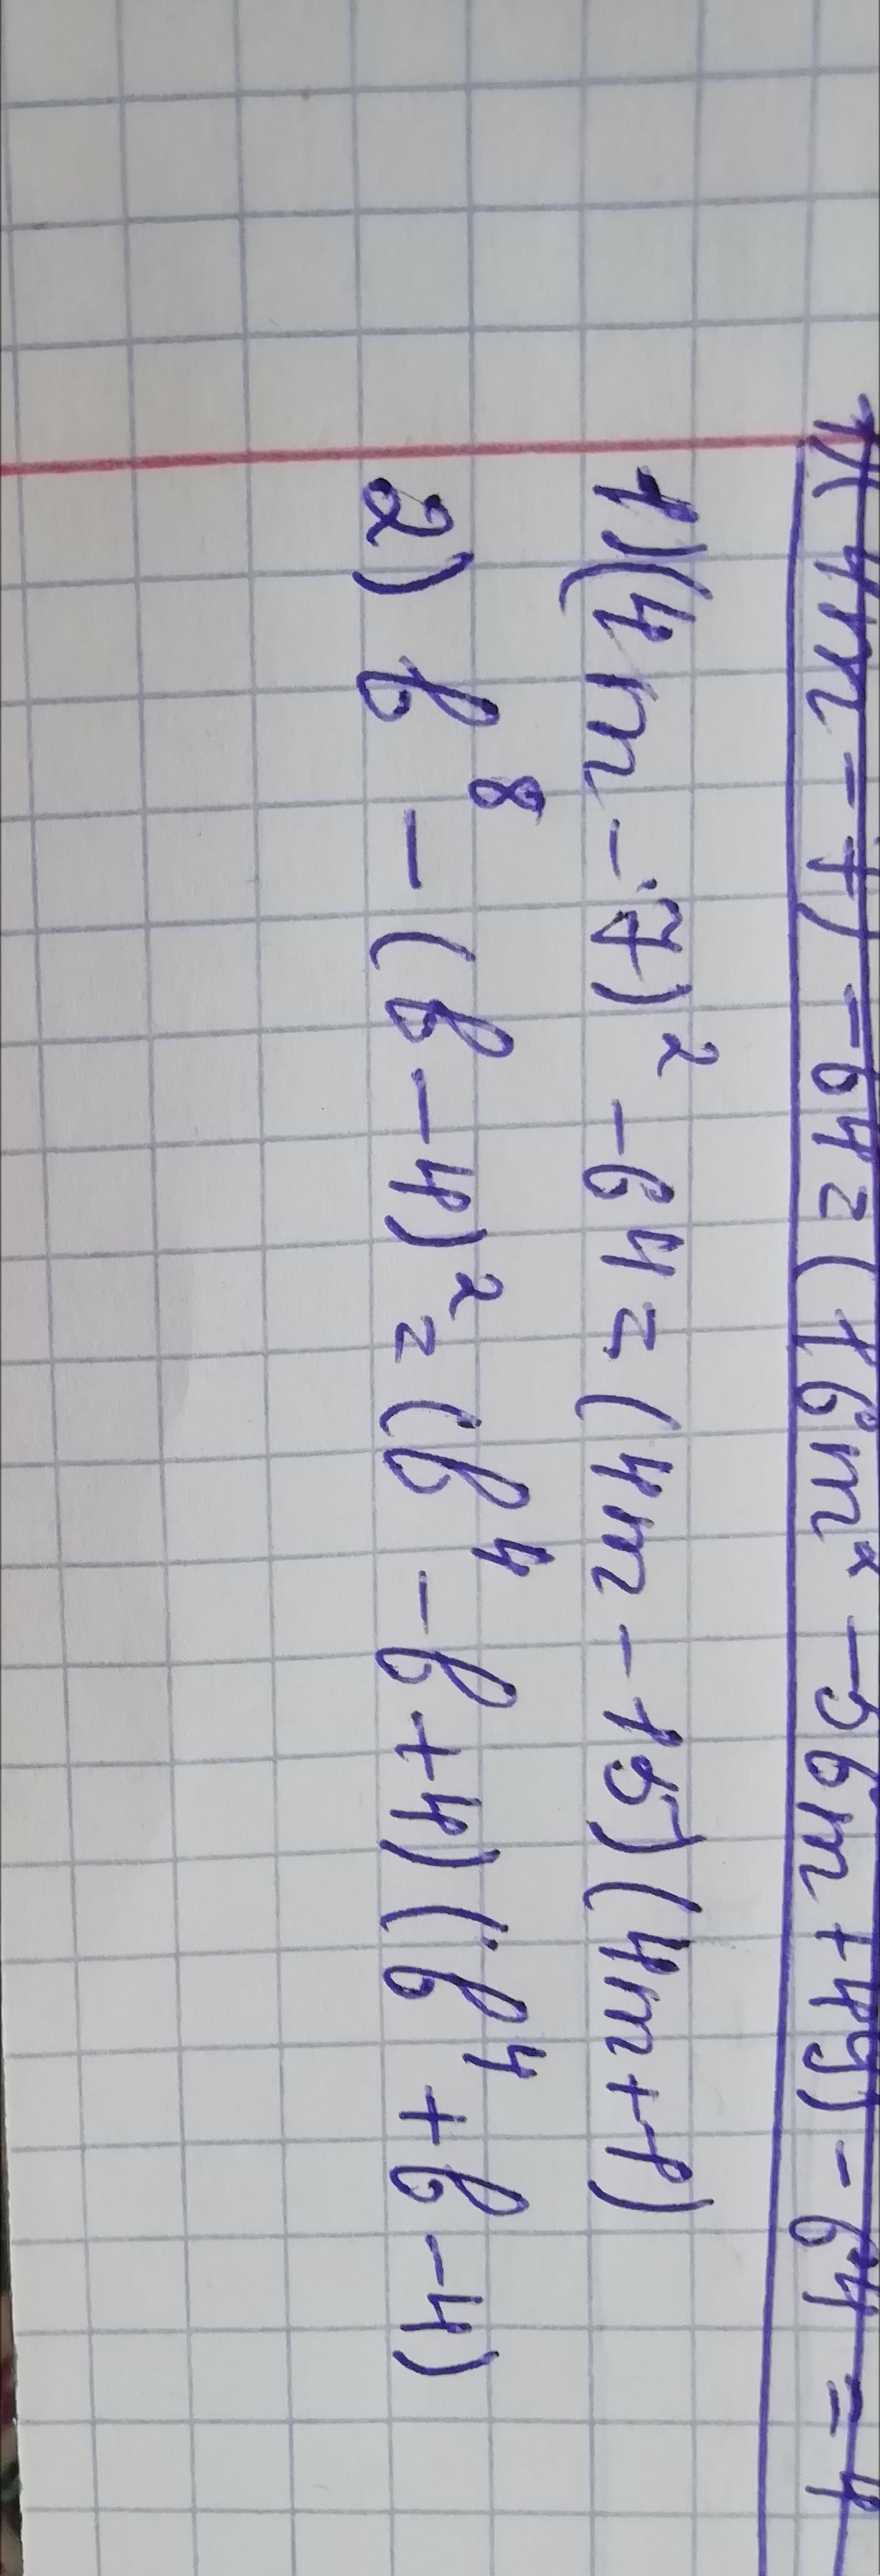 1)(4m-7)²-64=(16m²-56m+49)-64=4
1)(4m-7)²-64=(4m-15)(4m+1)
2) в⁸-(в-4)²=(в⁴-в+4)(в⁴+в-4)